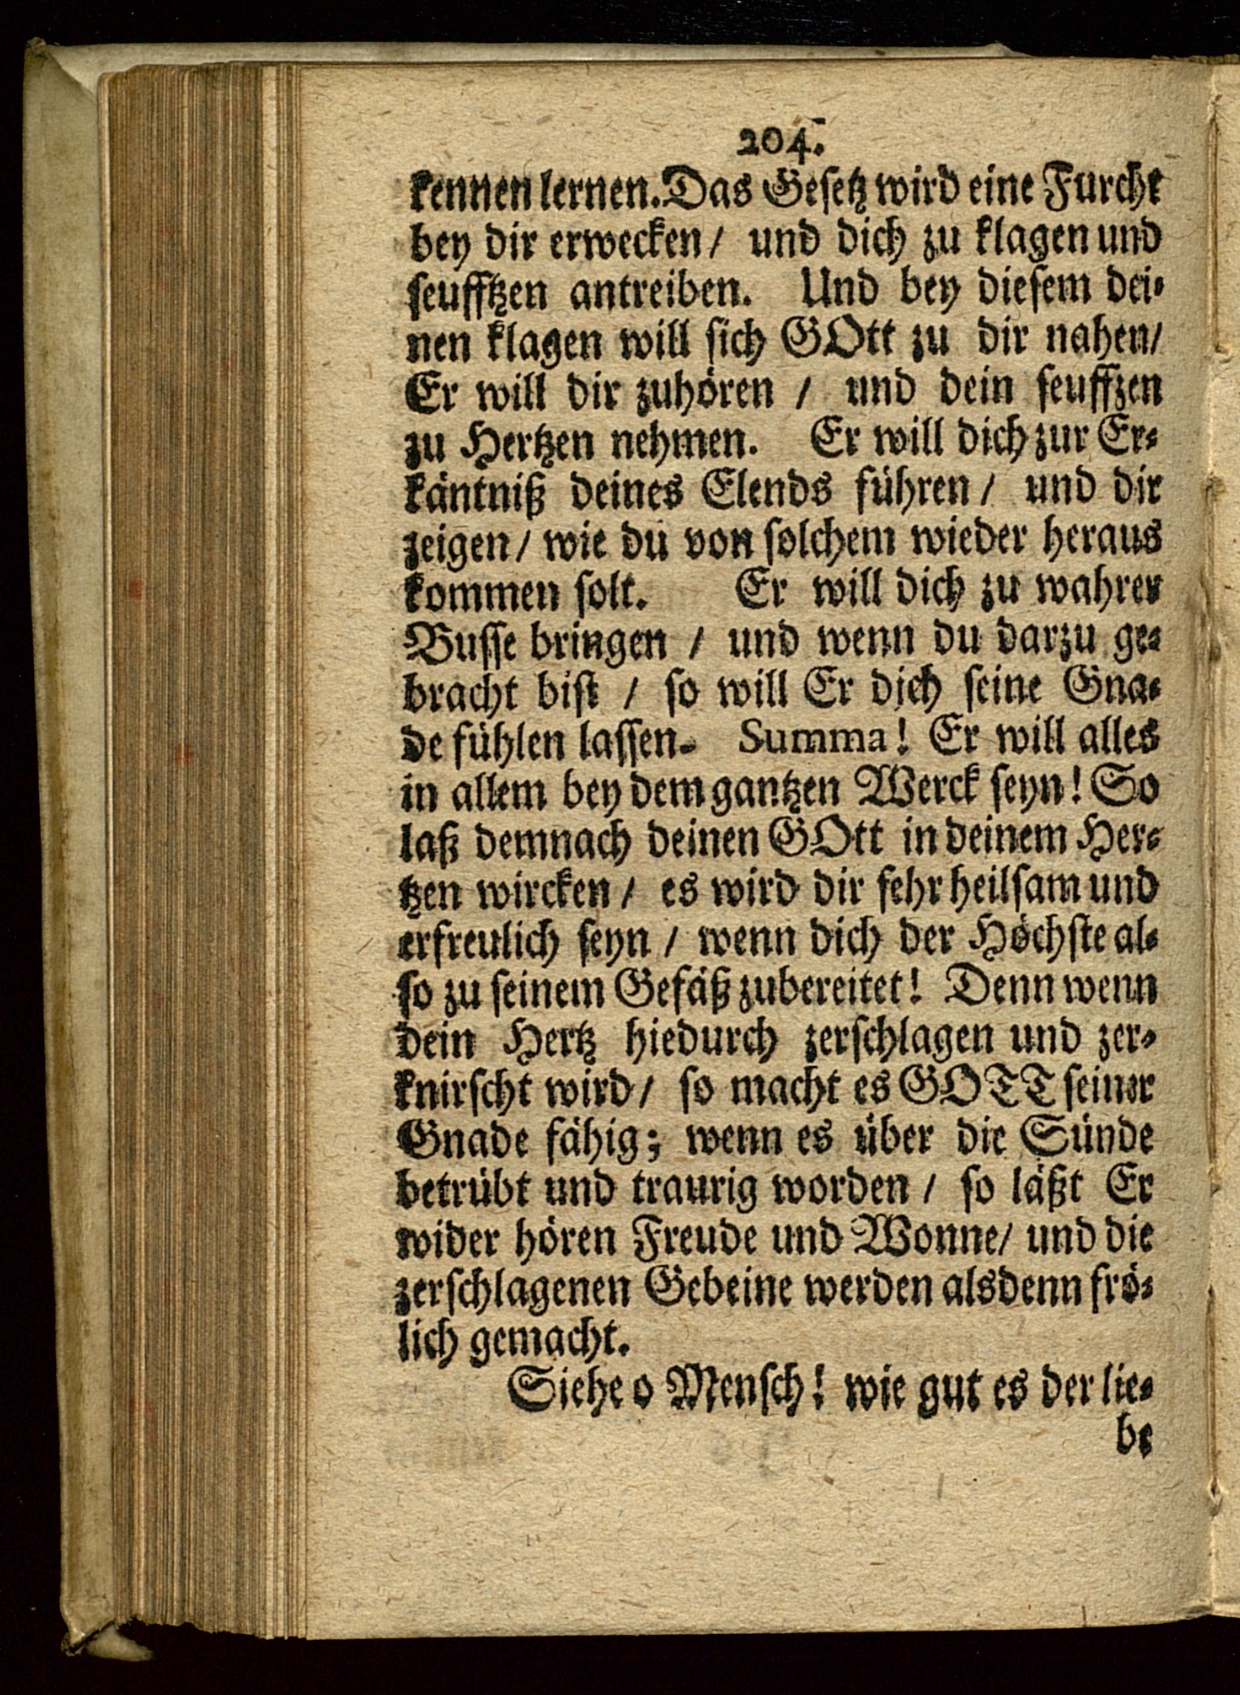 204.
kennen lernen. Das Gesetz wird eine Furcht
bey dir erwecken / und dich zu klagen und
seufftzen antreiben. Und bey diesem dei-
nen klagen will sich GOtt zu dir nahen /
Er will dir zuhören / und dein seuffzen
zu Hertzen nehmen. Er will dich zur Er-
käntniß deines Elends führen / und dir
zeigen / wie du von solchem wieder heraus
kommen solt. Er will dich zu wahrer
Busse bringen / und wenn du darzu ge-
bracht bist / so will Er dich seine Gna-
de fühlen lassen. Summa! Er will alles
in allem bey dem gantzen Werck seyn! So
laß demnach deinen GOtt in deinem Her-
tzen wircken / es wird dir sehr heilsam und
erfreulich seyn / wenn dich der Höchste al-
so zu seinem Gefäß zubereitet! Denn wenn
dein Hertz hiedurch zerschlagen und zer-
knirscht wird / so macht es GOTT seiner
Gnade fähig; wenn es über die Sünde
betrübt und traurig worden / so läßt Er
wider hören Freude und Wonne / und die
zerschlagenen Gebeine werden alsdenn frö-
lich gemacht.
Siehe o Mensch! wie gut es der lie-
be